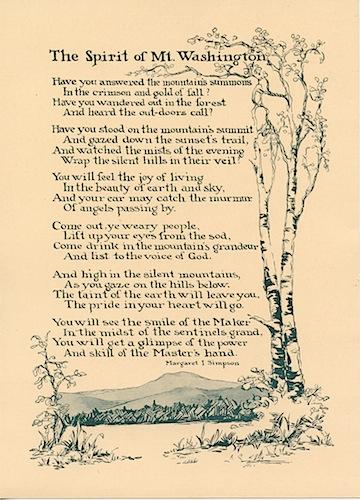 The Spirit of Mt. Washington
Have you answered the mountain's summons
In the crimson and gold of fall?
Have you wandered out in the forest
And heard the out-doors call?
Have you stood on the mountain's summit
And gazed down the sunset's trail,
And watched the mists of the evening
Wrap the silent hills in their veil?
You will feel the joy of living
In the beauty of earth and sky,
And your ear may catch the murmur
Of angels passing by.
Come out, ye weary people,
Lift up your eyes from the sod,
Come drink in the mountain's grandeur
And list to the voice of God.
And high in the silent mountains,
As you gaze on the hills below.
The taint of the earth will leave you,
The pride in your heart will go.
You will see the smile of the Maker
In the midst of the sentinels grand,
You will get a glimpse of the power
And skill of the Master's hand.
Margaret I Simpson